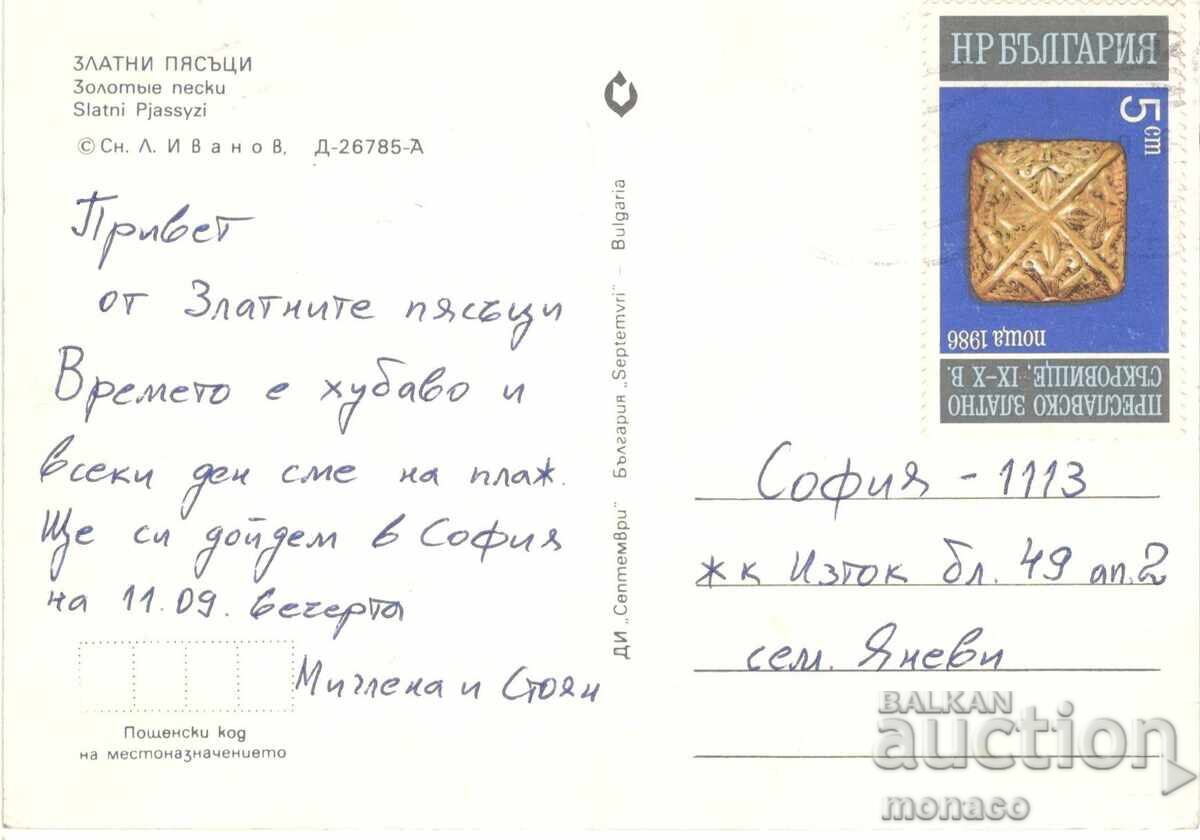 ЗЛАТНИ ПЯСЪЦИ
Золотые пески
Slatni Pjassyzi
© Сн. Л. Иванов, Д-26785-А
Привет
от Златните пясъци
Времето е хубаво и
всеки ден сме на плаж.
Ще си дойдем в София
на 11.09. вечерта
Миглена и Стоян
Пощенски код
на местоназначението
ДИ „Септември" България „Septemvri" – Bulgaria
НР БЪЛГАРИЯ
5 ст
поща 1986
ПРЕСЛАВСКО ЗЛАТНО
СЪКРОВИЩЕ, IX-X В.
София - 1113
жк Изток бл. 49 ап. 2
сем. Яневи
BALKAN
auction
monaco